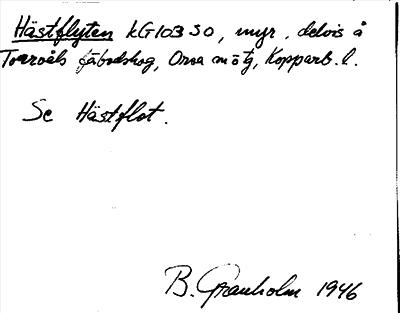 Hästflyten kG103 SO, myr, delvis å
Torråls fäbodskog, Orsa m ö tg, Kopparb. l.
Se Hästflot.
B. Granholm 1946